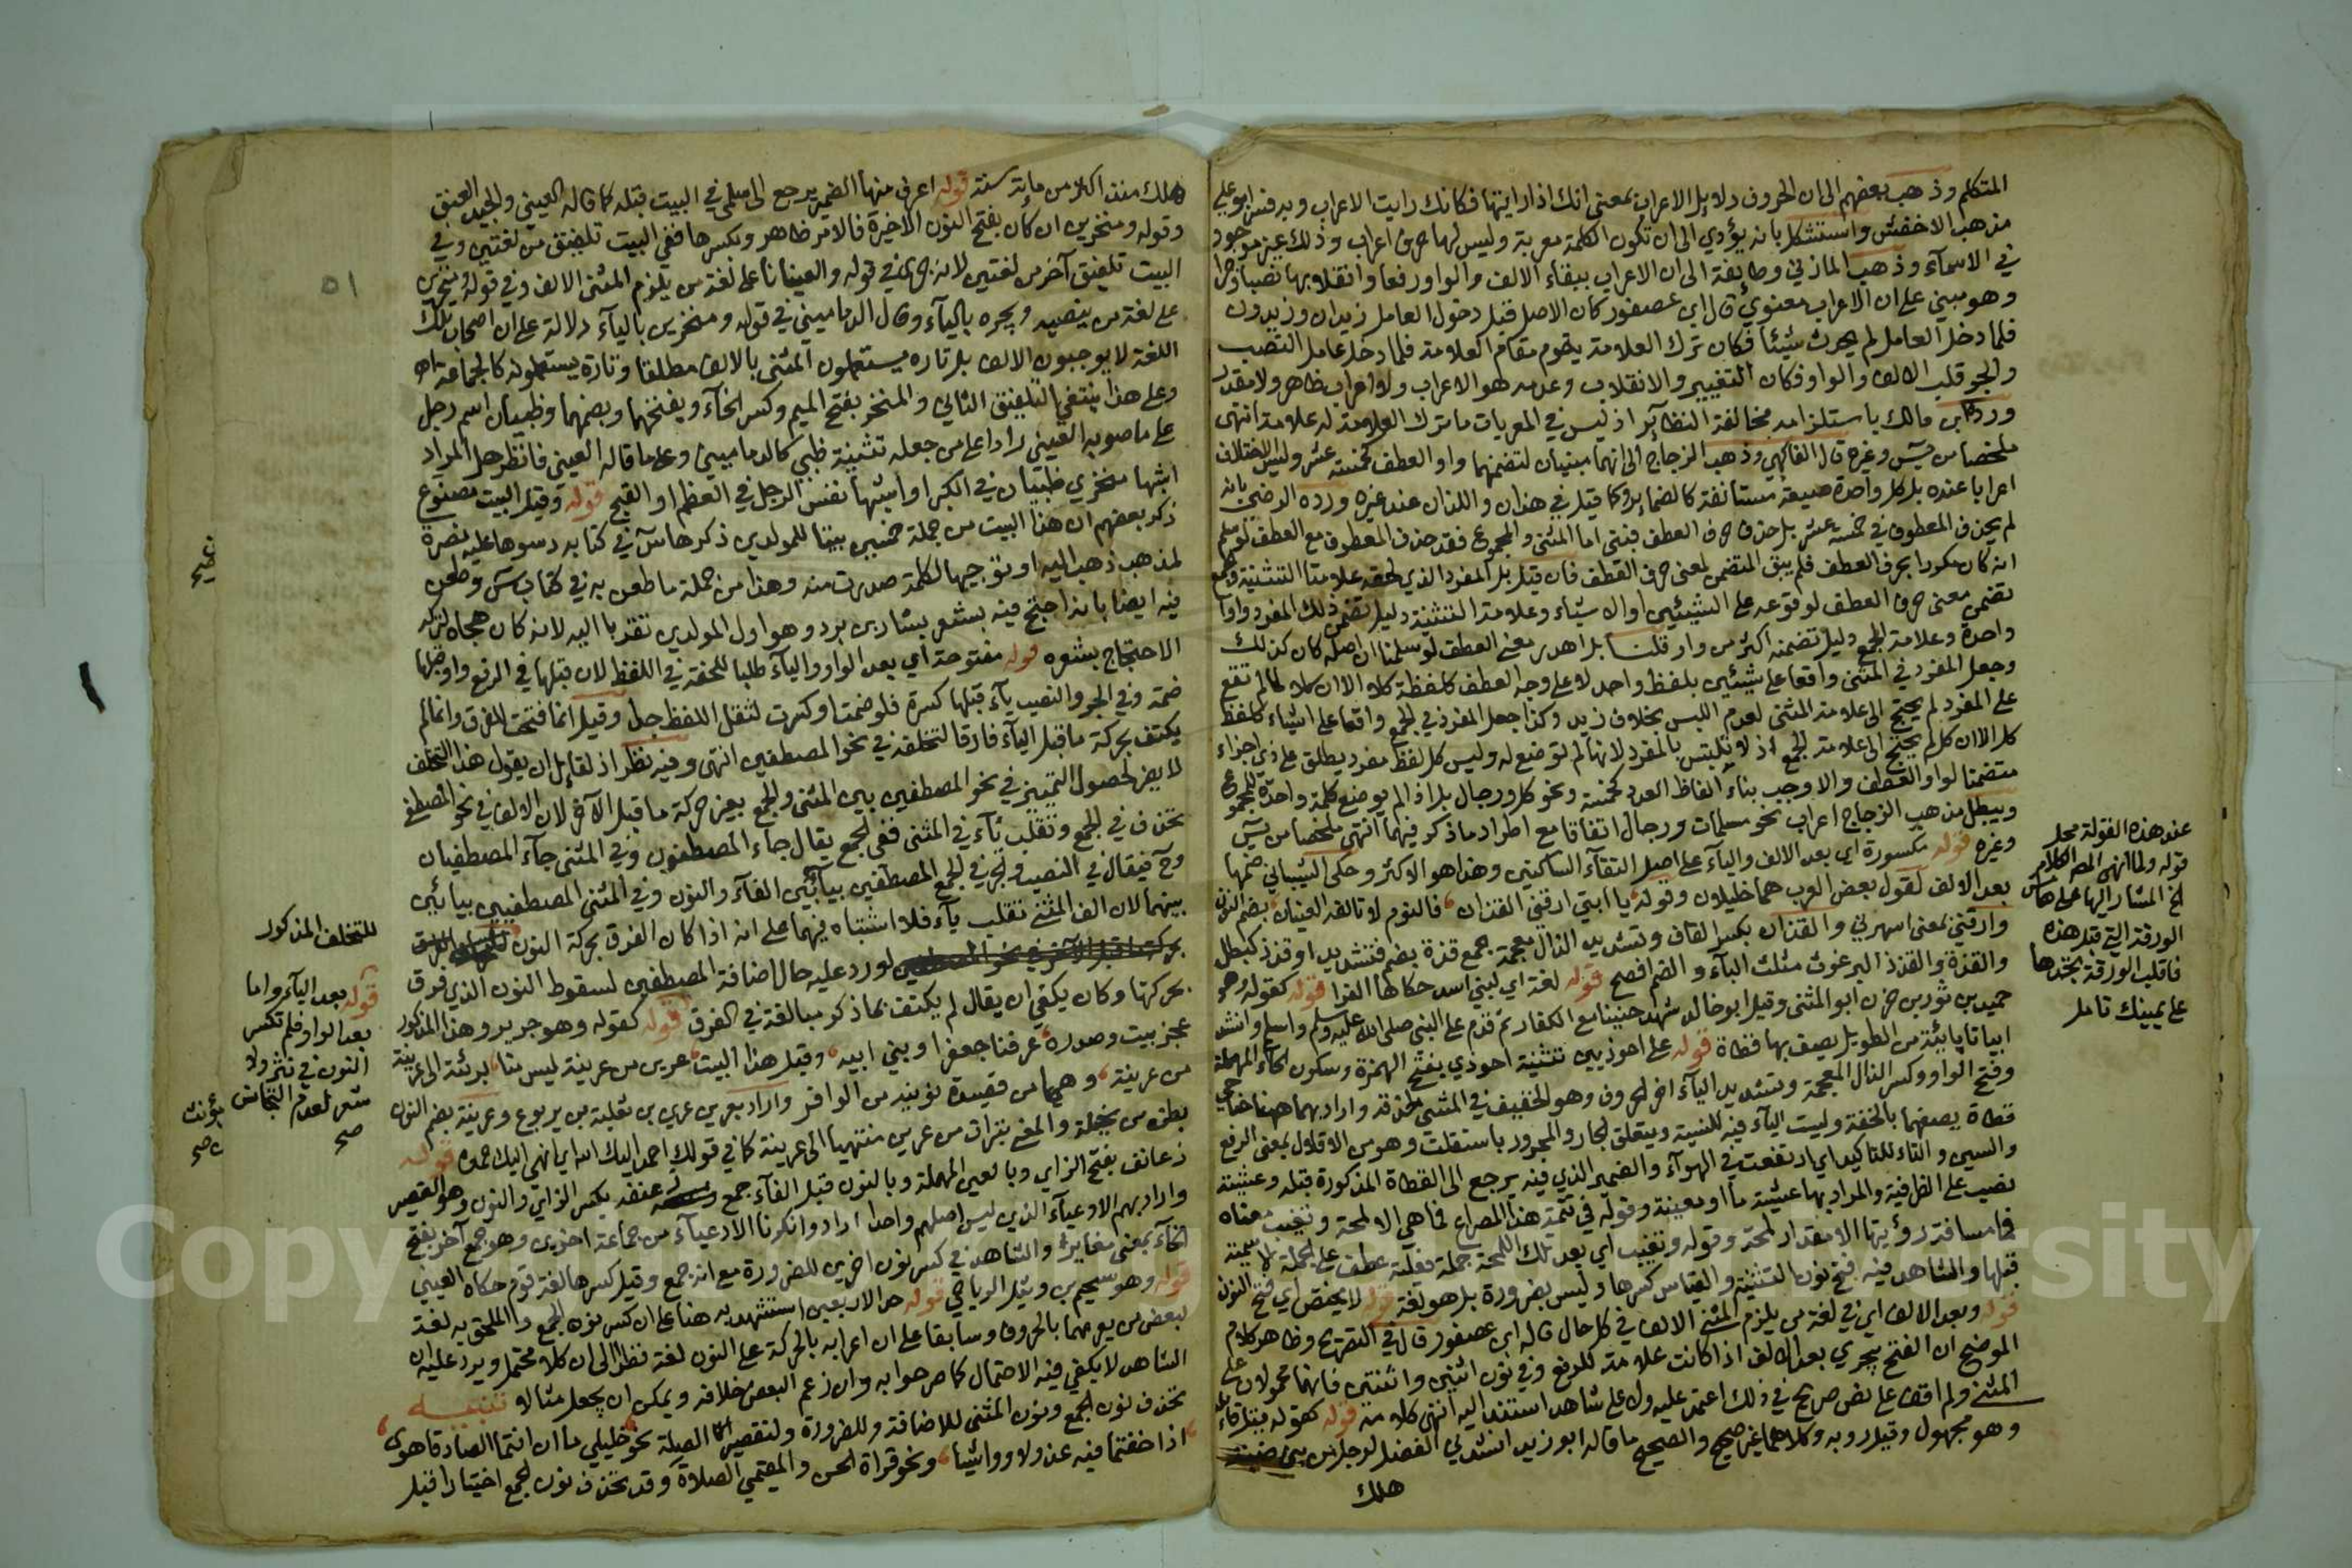 المتكلم وذهب بعضهم الى ان الحروف دلايل الاعراب بمعنى انك اذا رايتها فكانك رايت الاعراب وبه فسر ابو علي
مذهب الاخفش واستشكل بانه يؤدي الى ان تكون الكلمة معربة وليس لها حرف اعراب وذلك غير موجود
في الاسماء وذهب المازني وطايفة الى ان الاعراب ببقاء الالف والواو رفعا وانقلابهما نصبا وجرا
وهو مبني على ان الاعراب معنوي قال ابن عصفور كان الاصل قبل دخول العامل زيدان وزيدون
فلما دخل العامل لم يحدث شيئا فكان ترك العلامة يقوم مقام العلامة فلما دخل عامل النصب
والجر قلب الالف والواو فكان التغيير والانقلاب وعدمه هو الاعراب ولا اعراب ظاهر ولا مقدر
ورد ابن مالك باستلزامه مخالفة النظائر اذ ليس في المعربات ما ترك العلامة له علامة انتهى
ملخصا من يس وغيره قال الفاكهي وذهب الزجاج الى انهما مبنيان لتضمنهما واو العطف كخمسة عشر وليس الاختلاف
اعرابا عنده بل كل واحدة صيغة مستانفة كالضماير وكما قيل في هذان واللذان عند غيره ورده الرضي بانه
لم يحذف المعطوف في خمسة عشر بل حذف حرف العطف فبني اما المثنى والمجموع فقد حذف المعطوف مع العطف لو سلم
انه كان مكررا بحرف العطف فلم يبق المتضمن لمعنى حرف العطف فان قيل بل المفرد الذي لحقه علامتا التثنية والجمع
تضمن معنى حرف العطف لوقوعه على الشيئين او الاشياء وعلامة التثنية دليل تضمن ذلك المفرد واوا
واحدة وعلامة الجمع دليل تضمنه اكثر من واو قلنا بل اهدر معنى العطف لو سلمنا ان اصله كان كذلك
وجعل المفرد في المثنى واقعا على شيئين بلفظ واحد لا على وجه العطف كلفظة كلا الا ان كلا لما لم تقع
على المفرد لم يحتج الى علامة المثنى لعدم اللبس بخلاف زيد وكذا جعل المفرد في الجمع واقعا على اشياء كلفظ
كل الا ان كل لم يحتج الى علامة الجمع اذ لا يلتبس بالمفرد لانها لم توضع له وليس كل لفظ مفرد يطلق على ذي اجزاء
متضمنا لواو العطف والا وجب بناء الفاظ العدد كخمسة ونحو كل ورجال بل اذا لم يوضع كلمة واحدة للمجموع
ويبطل مذهب الزجاج اعراب نحو مسلمات ورجال اتفاقا مع اطراد ما ذكر فيهما انتهى ملخصا من يس
وغيره قوله مكسورة اي بعد الالف والياء على اصل التقاء الساكنين وهذا هو الاكثر وحكى الشيباني ضمها
بعد الالف لقول بعض العرب هما خليلان وقوله يا ابتي ارقني القذان فالنوم لا تالفه العينان بضم النون
وارقني بمعنى اسهرني والقذان بكسر القاف وتشديد الذال معجمة جمع قذة بضم فتشديد او قذذ كبطل
والقذة والقذذ البرغوث مثلث الباء والضم افصح قوله لغة اي لبني اسد حكاها الفرا قوله كقوله وهو
حميد بن ثور بن حزن ابو المثنى وقيل ابو خالد شهد حنينا مع الكفار ثم قدم على النبي صلى الله عليه وسلم واسلم وانشد
ابياتا يائية من الطويل يصف بها قطاة قوله على احوذيين تثنية احوذي بفتح الهمزة وسكون الحاء المهملة
وفتح الواو وكسر الذال المعجمة وتشديد الياء اخر الحروف وهو الخفيف في المشي لحذقه واراد بهما ههنا جناحي
قطاة يصفهما بالخفة وليست الياء فيه للنسبة ويتعلق الجار والمجرور باستقلت وهو من الاقلال بمعنى الرفع
والسين والتاء للتاكيد اي ارتفعت في الهواء والضمير الذي فيه يرجع الى القطاة المذكورة قبله وعشية
نصب على الظرفية والمراد بها عشية ما او معينة وقوله في تتمة هذا المصراع فما هي الا لمحة وتغيب معناه
فما مسافة رؤيتها الا مقدار لمحة وقوله وتغيب اي بعد تلك اللمحة جملة فعلية عطف على الجملة الاسمية
قبلها والشاهد فيه فتح نون التثنية والقياس كسرها وليس بضرورة بل هو لغة قوله لا يختص اي فتح النون
قوله وبعد الالف اي في لغة من يلزم المثنى الالف في كل حال قاله ابن عصفور قال في التصريح وظاهر كلام
الموضح ان الفتح يجري بعد الالف اذا كانت علامة للرفع وفي نون اثنين واثنتين فانهما محمولان على
المثنى ولم اقف على نص صريح في ذلك اعتمد عليه ولا على شاهد استند اليه انتهى كلامه قوله كقوله
وهو مجهول وقيل رؤبه وكلاهما غير صحيح والصحيح ما قاله ابو زيد انشدني المفضل لرجل من بني ضبة
هلك
عند هذه القولة محل
قوله ولما انهى المصـ الكلام
الخ المشار اليها على هامش
الورقة التي قبل هذه
فاقلب الورقة تجدها
على يمينك تامل
هلك منذ اكثر من ماية سنة قوله اعرف منها الضمير يرجع الى سلمى في البيت قبله كما قاله العيني والجيد العنق
وقوله ومنخرين ان كان بفتح النون الاخيرة فالامر ظاهر وبكسرها ففي البيت تلفيق من لغتين وفي
البيت تلفيق آخر من لغتين لانه جرى في قوله والعينانا على لغة من يلزم المثنى الالف وفي قوله ومنخرين
على لغة من ينصبه ويجره بالياء وقال الدماميني في قوله ومنخرين بالياء دلالة على ان اصحاب تلك
اللغة لا يوجبون الالف بل تارة يستعملون المثنى بالالف مطلقا وتارة يستعملونه كالجماعة اهـ
وعلى هذا ينتفي التلفيق الثاني والمنخر بفتح الميم وكسر الخاء وبفتحهما وبضمهما وظبيان اسم رجل
على ما صوبه العيني رادا على من جعله تثنية ظبي كالدماميني وعلى ما قاله العيني فانظر هل المراد
اشبها منخري ظبيان في الكبر او اشبها نفس الرجل في العظم او القبح قوله وقيل البيت مصنوع
ذكر بعضهم ان هذا البيت من جملة خمسين بيتا للمولدين ذكرها س في كتابه دسوها عليه نصرة
لمذهب ذهب اليه او توجيها لكلمة صدرت منه وهذا من جملة ما طعن به في كتاب س وطعن
فيه ايضا بانه احتج فيه بشعر بشار بن برد وهو اول المولدين تقربا اليه لانه كان هجاه لتركه
الاحتجاج بشعره قوله مفتوحة اي بعد الواو والياء طلبا للخفة في اللفظ لان قبلها في الرفع واو قبلها
ضمة وفي الجر والنصب ياء قبلها كسرة فلو ضمت او كسرت لثقل اللفظ جدا وقيل انما فتحت للفرق وانما لم
يكتف بحركة ما قبل الياء فارقا لتخلفه في نحو المصطفين انتهى وفيه نظر اذ لقائل ان يقول هذا التخلف
لا يضر لحصول التمييز في نحو المصطفين بين المثنى والجمع بغير حركة ما قبل الآخر لان الالف في نحو المصطفى
تحذف في الجمع وتقلب ياء في المثنى ففي الجمع يقال جاء المصطفون وفي المثنى جاء المصطفيان
وح فيقال في النصب والجر في الجمع المصطفين بياء بين الفاء والنون وفي المثنى المصطفيين بيائين
بينهما لان الف المثنى تقلب ياء فلا اشتباه فيهما على انه اذا كان الفرق بحركة النون
لورد عليه حال اضافة المصطفين لسقوط النون الذي فرق
بحركتها وكان يكفي ان يقال لم يكتف بما ذكر مبالغة في الفرق قوله كقوله وهو جرير وهذا المذكور
عجز بيت وصدره عرفنا جعفرا وبني ابيه وقبل هذا البيت عرين من عرينة ليس منا برئت الى عرينة
من عرينة وهما من قصيدة نونية من الوافر واراد بعرين عرين بن ثعلبة بن يربوع وعرينة بضم النون
بطن من بجيلة والمعنى بترات من عرين منتهيا الى عرينة كما في قولك احمد اليك الله اي انهي اليك حمده قوله
زعانف بفتح الزاي وبالعين المهملة وبالنون قبل الفاء جمع زعنفة بكسر الزاي والنون وهو القصير
واراد بهم الادعياء الذين ليس اصلهم واحدا اراد وانكرنا الادعياء من جماعة اخرين وهو جمع آخر بفتح
الخاء بمعنى مغاير والشاهد في كسر نون اخرين للضرورة مع انه جمع وقيل كسرها لغة قوم حكاه العيني
قوله وهو سحيم بن وثيل الرياحي قوله حد الاربعين استشهد به هنا على ان كسر نون الجمع والملحق به لغة
لبعض من يعربهما بالحروف وسابقا على ان اعرابه بالحركة على النون لغة نظرا الى ان كلا محتمل ويرد عليه ان
الشاهد لا يكفي فيه الاحتمال كما صرحوا به وان زعم البعض خلافه ويمكن ان يجعل مثالا تنبيه
تحذف نون الجمع ونون المثنى للاضافة وللضرورة ولتقصير الصلة نحو خليلي ما ان انتما الصادقا هوى
اذا خفتما فيه عذولا وواشيا ونحو قراة الحسن والمقيمي الصلاة وقد تحذف نون الجمع اختيارا قبل
للتخلف المذكور
قوله بعد الياء واما
بعد الواو فلم تكسر
النون في نثر ولا
شعر لعدم التجانس
صح